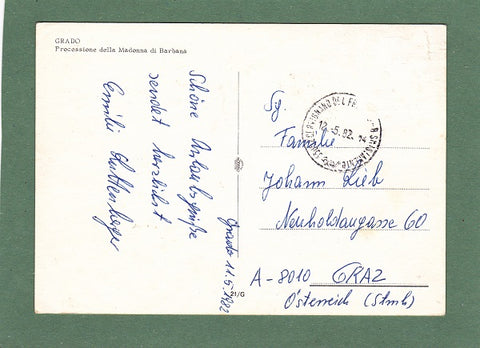 GRADO
Processione della Madonna di Barbana
Schöne Urlaubsgrüße
sendet herzlichst
Emilie
Grado 11.5.1982
21/G
12.-5.82.-14
Sg.
Familie
Johann Lieb
Neuholdaugasse 60
A-8010 GRAZ
Österreich (Stmk)